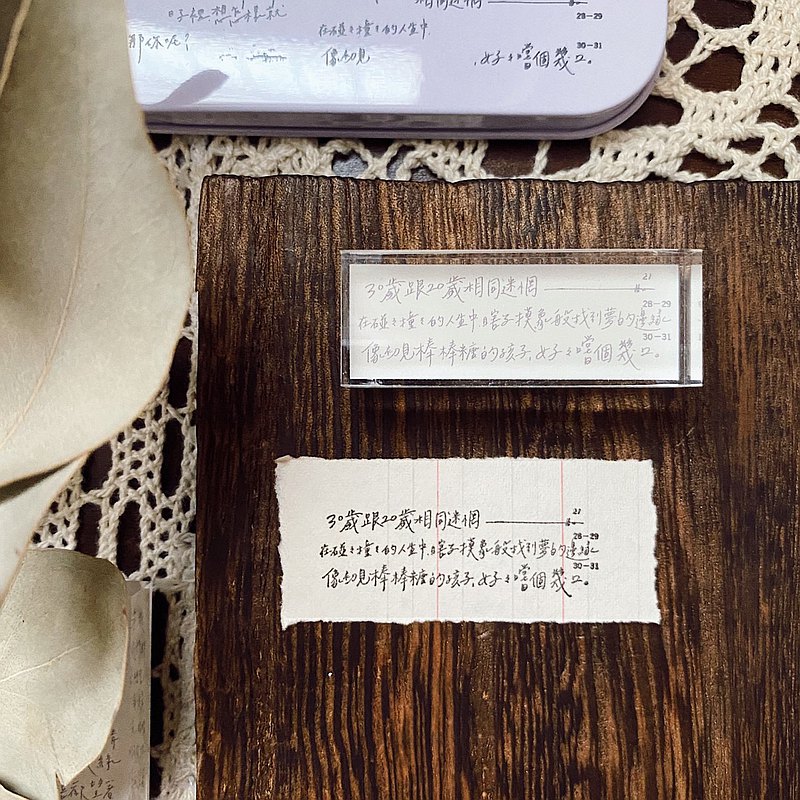 相同迷惘
28-29
在碰々撞々的人生中
30-31
那你呢?
像初見
好々嚐個幾口。
30歲跟20歲相同迷惘
21
28-29
在碰々撞々的人生中,瞎子摸象般找到夢的邊緣
30-31
像初見棒棒糖的孩子,好々嚐個幾口。
30歲跟20歲相同迷惘
21
28-29
在碰々撞々的人生中,瞎子摸象般找到夢的邊緣
30-31
像初見棒棒糖的孩子,好々嚐個幾口。